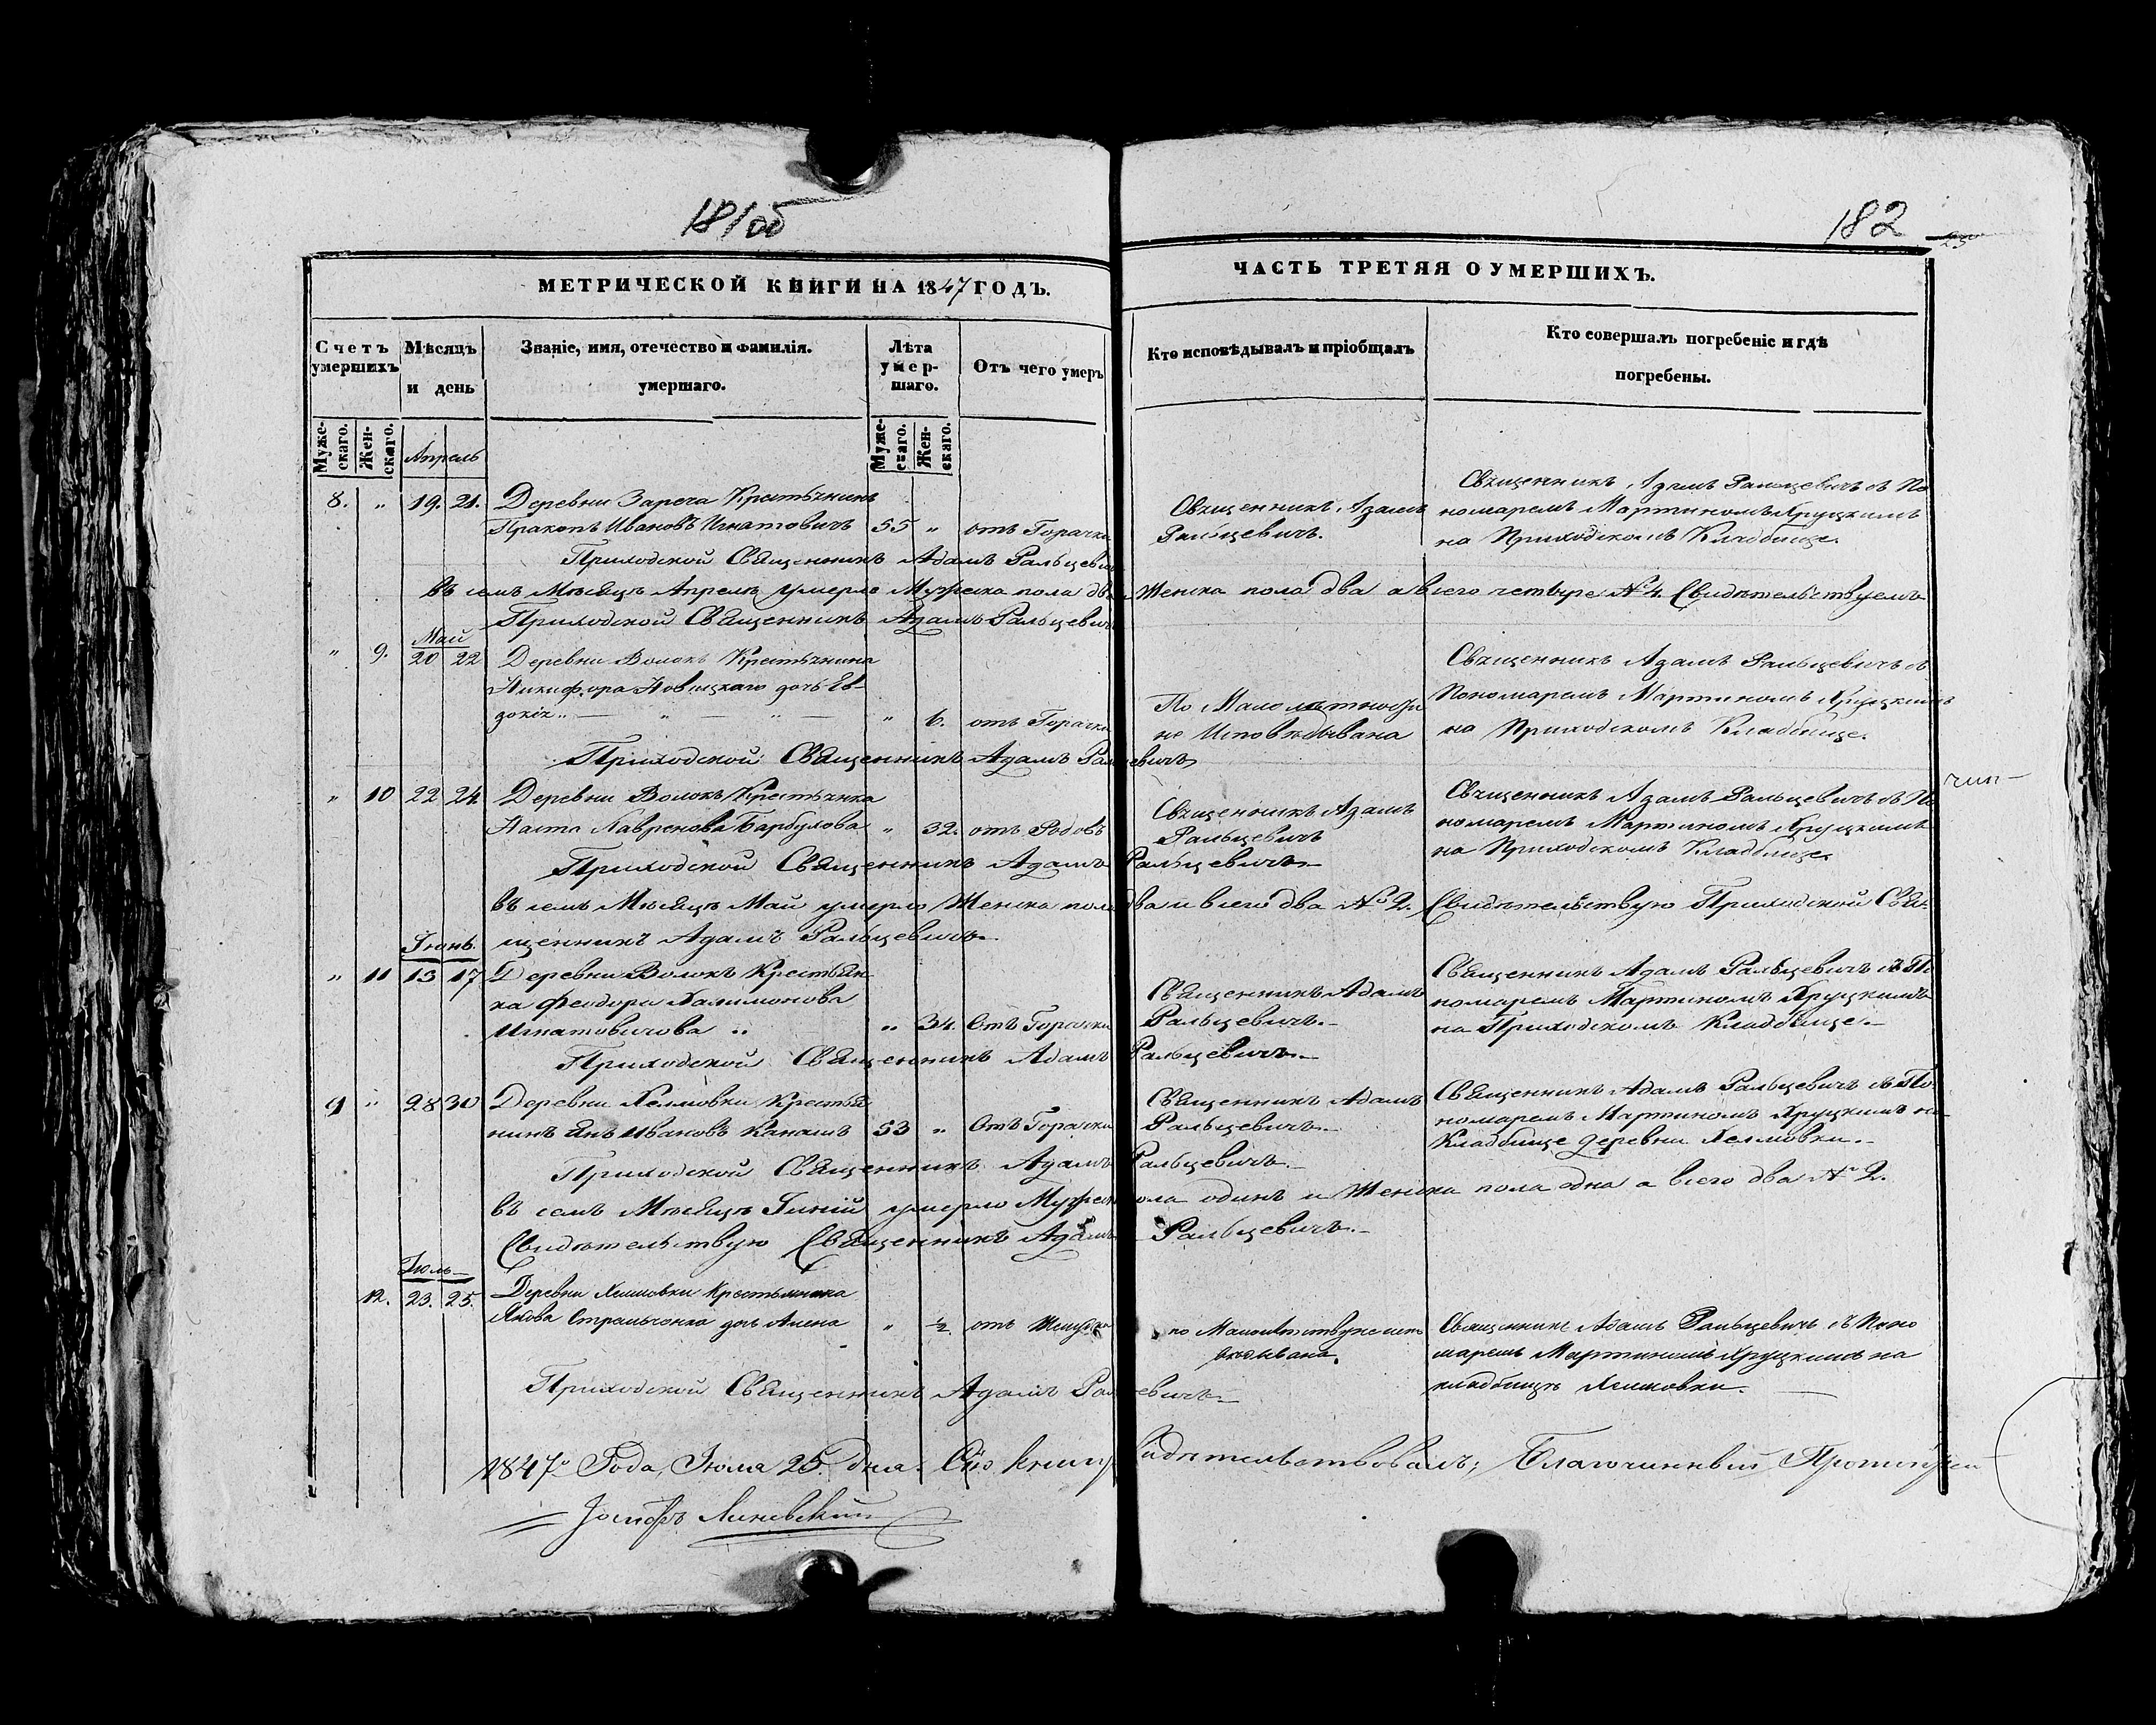 181об
182
МЕТРИЧЕСКОЙ КНИГИ НА 1847 ГОДЪ.
ЧАСТЬ ТРЕТЯЯ О УМЕРШИХЪ.
Счетъ умершихъ
Мѣсяцъ и день
Званіе, имя, отечество и фамилія. умершаго.
Лѣта умершаго.
Отъ чего умеръ
Кто исповѣдывалъ и пріобщалъ
Кто совершалъ погребеніе и гдѣ погребены.
Мужескаго.
Женскаго.
Мужескаго.
Женскаго.
Апрель
8. " 19. 21. Деревни Зареча Крестьянинъ
Пракопъ Ивановъ Игнатовичъ 55 " отъ Горачки
Священникъ Адамъ
Ральцевичъ.
Священникъ Адамъ Ральцевичъ съ По
номаремъ Мартиномъ Хруцкимъ
на Приходскомъ Кладбище.
Приходской Священникъ Адамъ Ральцевичъ
въ семъ Мѣсяцѣ Апрель умерло Мужеска пола два Женска пола два а всего четыре № 4. Свидѣтельствуемъ
Приходской Священникъ Адамъ Ральцевичъ
Май
" 9. 20 22 Деревни Волокъ Крестьянина
Никифора Новицкаго дочь Ев-
докія " — " — " — " 6. отъ Горачки
По Малолѣтности
не Исповѣдывана
Священникъ Адамъ Ральцевичъ съ
Пономаремъ Мартиномъ Хруцкимъ
на Приходскомъ Кладбище.
Приходской Священникъ Адамъ Ральцевичъ
" 10 22 24. Деревни Волокъ Крестьянка
Наста Лавренова Барбулова " 32. отъ Родовъ
Священникъ Адамъ
Ральцевичъ
Священникъ Адамъ Ральцевичъ съ По
номаремъ Мартиномъ Хруцкимъ
на Приходскомъ Кладбище.
Приходской Священникъ Адамъ Ральцевичъ.
въ семъ Мѣсяцѣ Май умерло Женска пола два и всего два № 2. Свидѣтельствую Приходской Свя-
щенникъ Адамъ Ральцевичъ.
Іюнь.
" 11 15 17 Деревни Волокъ Крестьян-
ка Феодора Халимонова
Игнатовичова " " 34. Отъ Горачки
Священникъ Адамъ
Ральцевичъ.
Священникъ Адамъ Ральцевичъ съ По
номаремъ Мартиномъ Хруцкимъ
на Приходскомъ Кладбище.
Приходской Священникъ Адамъ Ральцевичъ.
9 " 28 30 Деревни Хелмовки Крестья
нинъ Янъ Ивановъ Канашъ 53 " Отъ Горачки
Священникъ Адамъ
Ральцевичъ.
Священникъ Адамъ Ральцевичъ съ По
номаремъ Мартиномъ Хруцкимъ на
Кладбище деревни Хелмовки.
Приходской Священникъ Адамъ Ральцевичъ.
въ семъ Мѣсяцѣ Іюній умерло Мужеска пола одинъ и Женска пола одна а всего два № 2.
Свидѣтельствую Священникъ Адамъ Ральцевичъ.
Іюль
12. 23. 25. Деревни Хелмовки Крестьянина
Якова Стральчонка дочь Алена " ½ отъ
по
Священникъ Адамъ Ральцевичъ съ Поно
маремъ Мартиномъ Хруцкимъ на
кладбищѣ Хелмовки.
Приходской Священникъ Адамъ Ральцевичъ
1847го Года, Іюля 25. дня. Сію книгу Свидѣтельствовалъ; Благочинный Протоіерей
Іосифъ Линевскій